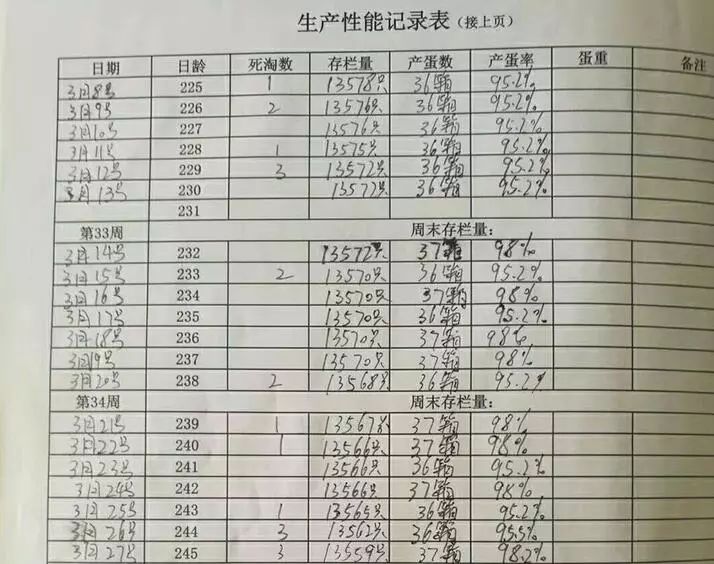 生产性能记录表（接上页）
日期 日龄 死淘数 存栏量 产蛋数 产蛋率 蛋重 备注
3月8号 225 1 13578只 36箱 95.2%
3月9号 226 2 13576只 36箱 95.2%
3月10号 227 13576只 36箱 95.2%
3月11号 228 1 13575只 36箱 95.2%
3月12号 229 3 13572只 36箱 95.2%
3月13号 230 13572只 36箱 95.2%
231
第33周 周末存栏量：
3月14号 232 13572只 37箱 98%
3月15号 233 2 13570只 36箱 95.2%
3月16号 234 13570只 37箱 98%
3月17号 235 13570只 36箱 95.2%
3月18号 236 13570只 37箱 98%
3月19号 237 13570只 37箱 98%
3月20号 238 2 13568只 36箱 95.2%
第34周 周末存栏量：
3月21号 239 1 13567只 37箱 98%
3月22号 240 1 13566只 37箱 98%
3月23号 241 13566只 36箱 95.2%
3月24号 242 13566只 37箱 98%
3月25号 243 1 13565只 36箱 95.2%
3月26号 244 3 13562只 36箱 95.5%
3月27号 245 3 13559只 37箱 98.2%